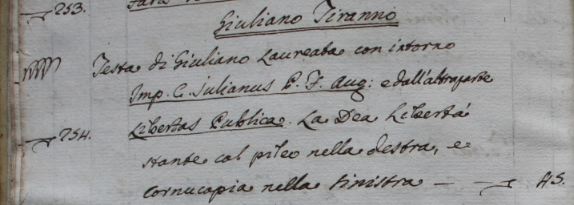 253.
Giuliano Tiranno
Testa di Giuliano Laureata con intorno
Imp. C. Julianus P. F. Aug: e dall'altra parte
254. Libertas Publica. La Dea Libertá
stante col pileo nella destra, e
cornucopia nella sinistra — — AS.